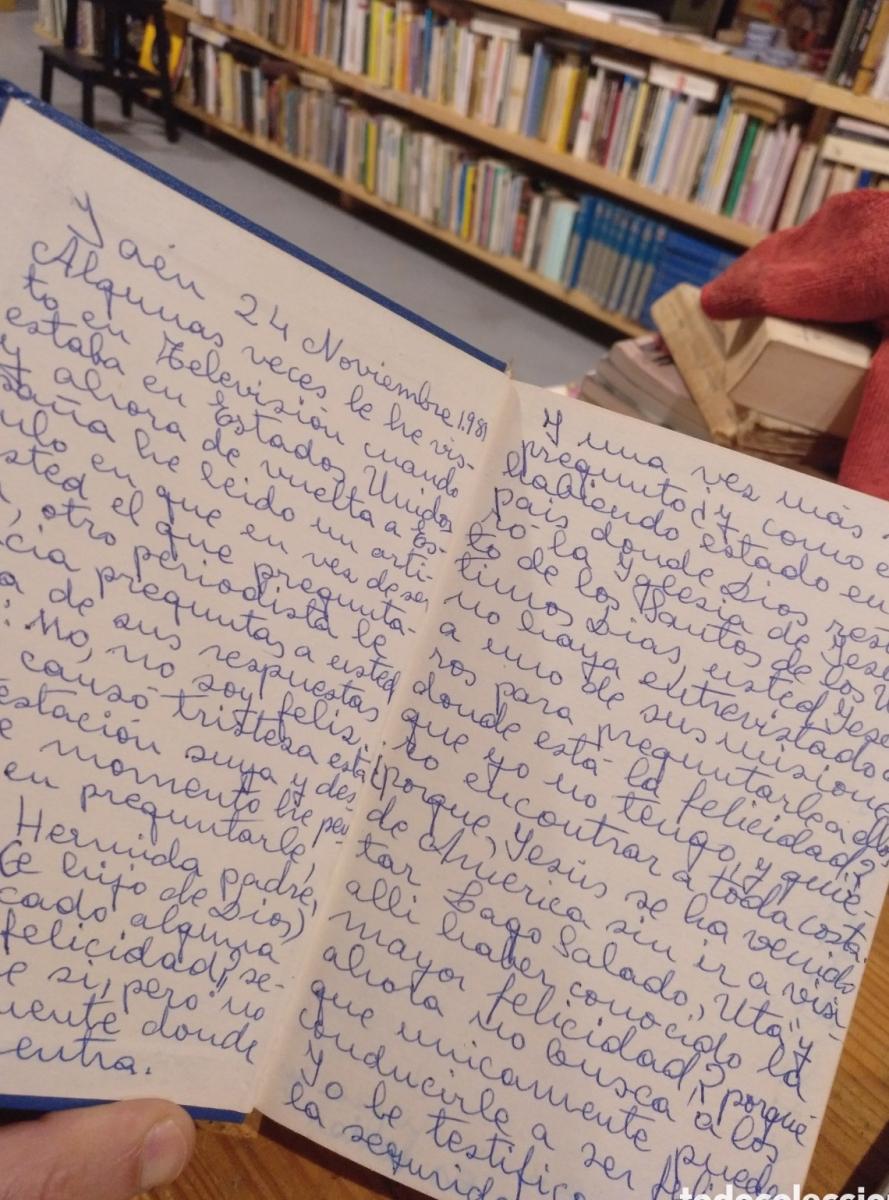 Jaén 24 Noviembre 1.981
Algunas veces le he vis-
to en Televisión cuando
estaba en Estados Unidos
y ahora de vuelta a Es-
paña he leido un arti-
culo en que en vez de ser
usted el que pregunta-
, otro periodista le
cia preguntas a usted
a de sus respuestas
: No, no soy feliz,
causó tristeza esta
estación suya y des
e momento he pen-
en preguntarle,
Hermida padre,
(e hijo de Dios)
cado alguna
felicidad? se-
e si, pero no
mente donde
entra.
Y una vez más
pregunto ¿y como e
habiendo estado en
pais donde Dios res
ró la Yglesia de Jesu
to de los Santos de los Ul
timos Dias, usted Jesu
no haya entrevistado
a uno de sus misione
ros para preguntarle a ellos
donde está la felicidad?
que yo no tengo y quie-
ro encontrar a toda costa.
¿porque, Jesús se ha venido
de America sin ir a visi-
tar Lago Salado, "Uta" y
alli haber conocido la
mayor felicidad? ¿porqué
ahora no busca a los
que unicamente pueden
conducirle a ser feliz?
Yo le testifico
la segurid
todocoleccion